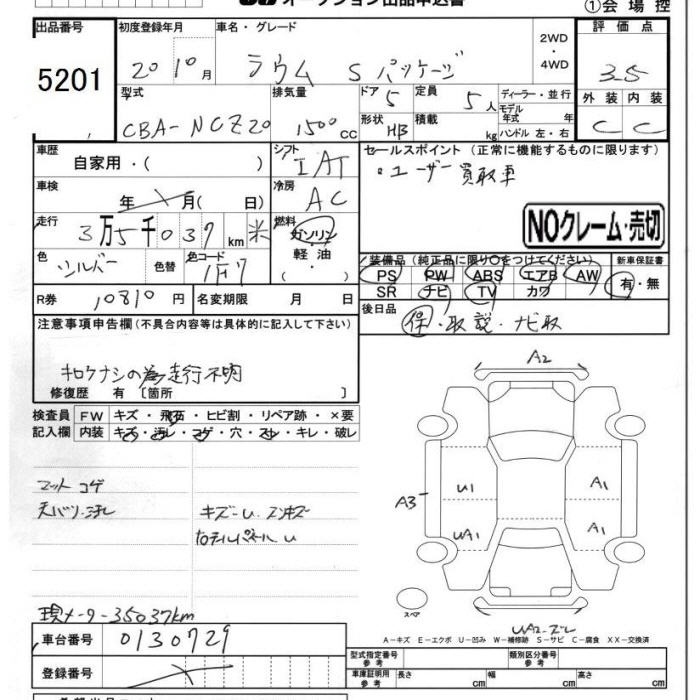 オークション出品申込書
①会場控
出品番号 初度登録年月 車名・グレード 2WD・4WD 評価点
5201 20年10月 ラウム Sパッケージ 3.5
型式 排気量 ドア 定員 ディーラー・並行 外装 内装
CBA-NCZ20 1500cc 5 5人 モデル年式 年式 C C
形状 HB 積載 kg ハンドル 左・右
車歴 シフト セールスポイント (正常に機能するものに限ります)
自家用・( ) IAT ・ユーザー買取車
車検 年 月( 日) 冷房 AC
NOクレーム・売切
走行 3万5千037km 米 燃料 ガソリン・軽油・
色 シルバー 色替 色コード 1F7
装備品 (純正品に限り○をつけてください) 新車保証書
PS PW ABS エアB AW 有・無
SR ナビ TV カワ
R券 10810円 名変期限 月 日
後日品 保・取説・ナビ取
注意事項申告欄 (不具合内容等は具体的に記入して下さい)
キロケナシの為走行不明
修復歴 有 [箇所 ]
検査員記入欄 FW キズ・飛石・ヒビ割・リペア跡・×要
内装 キズ・汚レ・コゲ・穴・スレ・キレ・破レ
A2
マット コゲ
天バリ汚れ キズ-U
U1 A1
A3
UA1 A1
現メーター35037km
スペア
UA2
A-キズ E-エクボ U-凹み W-補修跡 S-サビ C-腐食 XX-交換済
車台番号 0130729
型式指定番号 参考 類別区分番号 参考
登録番号
車庫証明用 参考 長さ cm 幅 cm 高さ cm